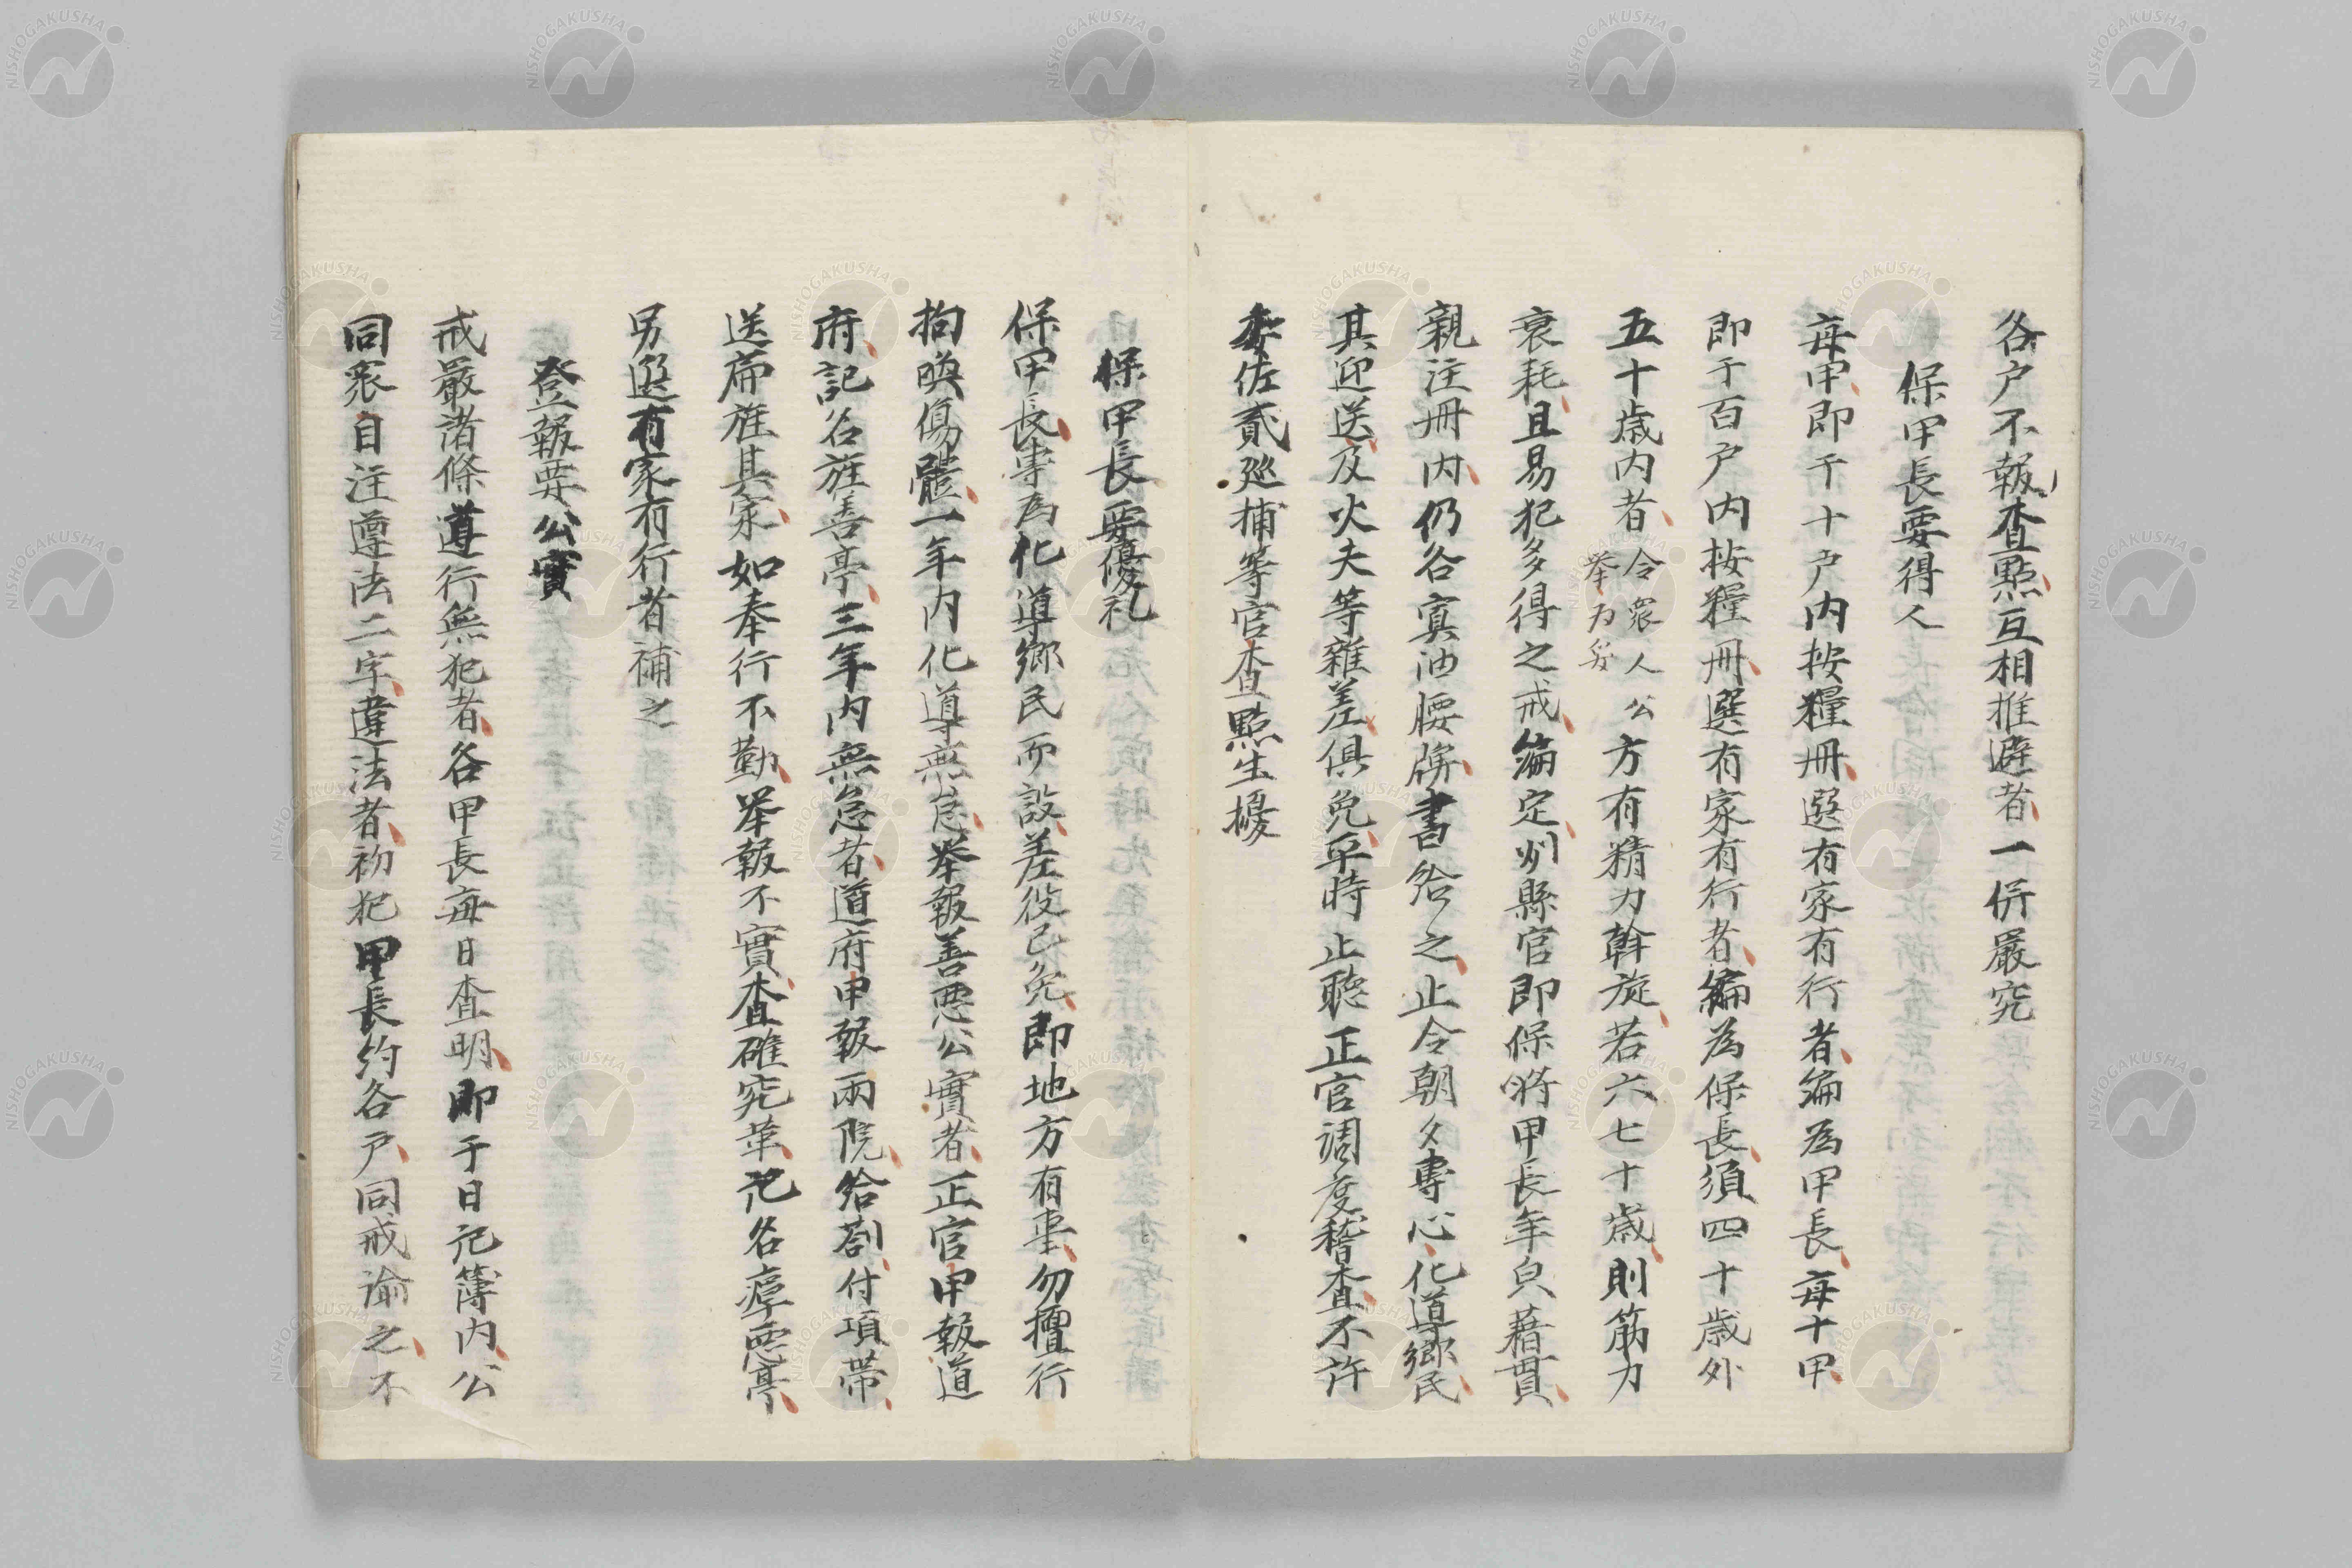 各户不報查點互相推避者一併嚴究
保甲長要得人
每甲即于十户内按糧冊選有家有行者編為甲長每十甲
即于百户内按糧冊選有家有行者編為保長須四十歳外
五十歳内者令衆人公举为妥方有精力幹旋若六七十歳則筋力
衰耗且易犯多得之戒編定州縣官即保將甲長年皃藉貫
親注冊内仍各寘油腰牌書給之止令朝夕專心化導鄉民
其迎送及火夫等雜差俱免平時止聽正官調度稽查不許
委佐貳巡捕等官查點生擾
保甲長要優礼
保甲長專為化導鄉民而設差役已免即地方有事勿擅行
拘喚傷體一年内化導無怠举報善悪公實者正官申報道
府記名旌善亭三年内無怠者道府申報兩院給劄付項帯
送扁旌其家如奉行不勤举報不實查確究革记名癉悪亭
另選有家有行者補之
登報要公實
戒嚴諸條遵行無犯者各甲長每日查明即于日记簿内公
同衆自注遵法二字違法者初犯甲長約各户同戒諭之不
NISHOGAKUSHA